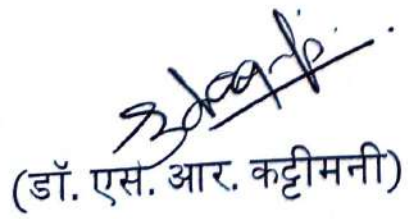 (डॉ. एस. आर. कट्टीमनी)